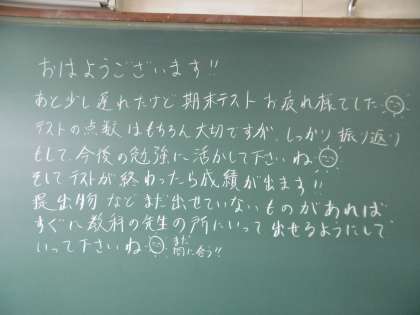 おはようございます!!
あと少し遅れたけど期末テストお疲れ様でした
テストの点数はもちろん大切ですが、しっかり振り返り
もして、今後の勉強に活かして下さいね
そしてテストが終わったら成績が出ます!!
提出物などまだ出せていないものがあれば
すぐに教科の先生の所にいって出せるようにして
いって下さいね まだ間に合う!!